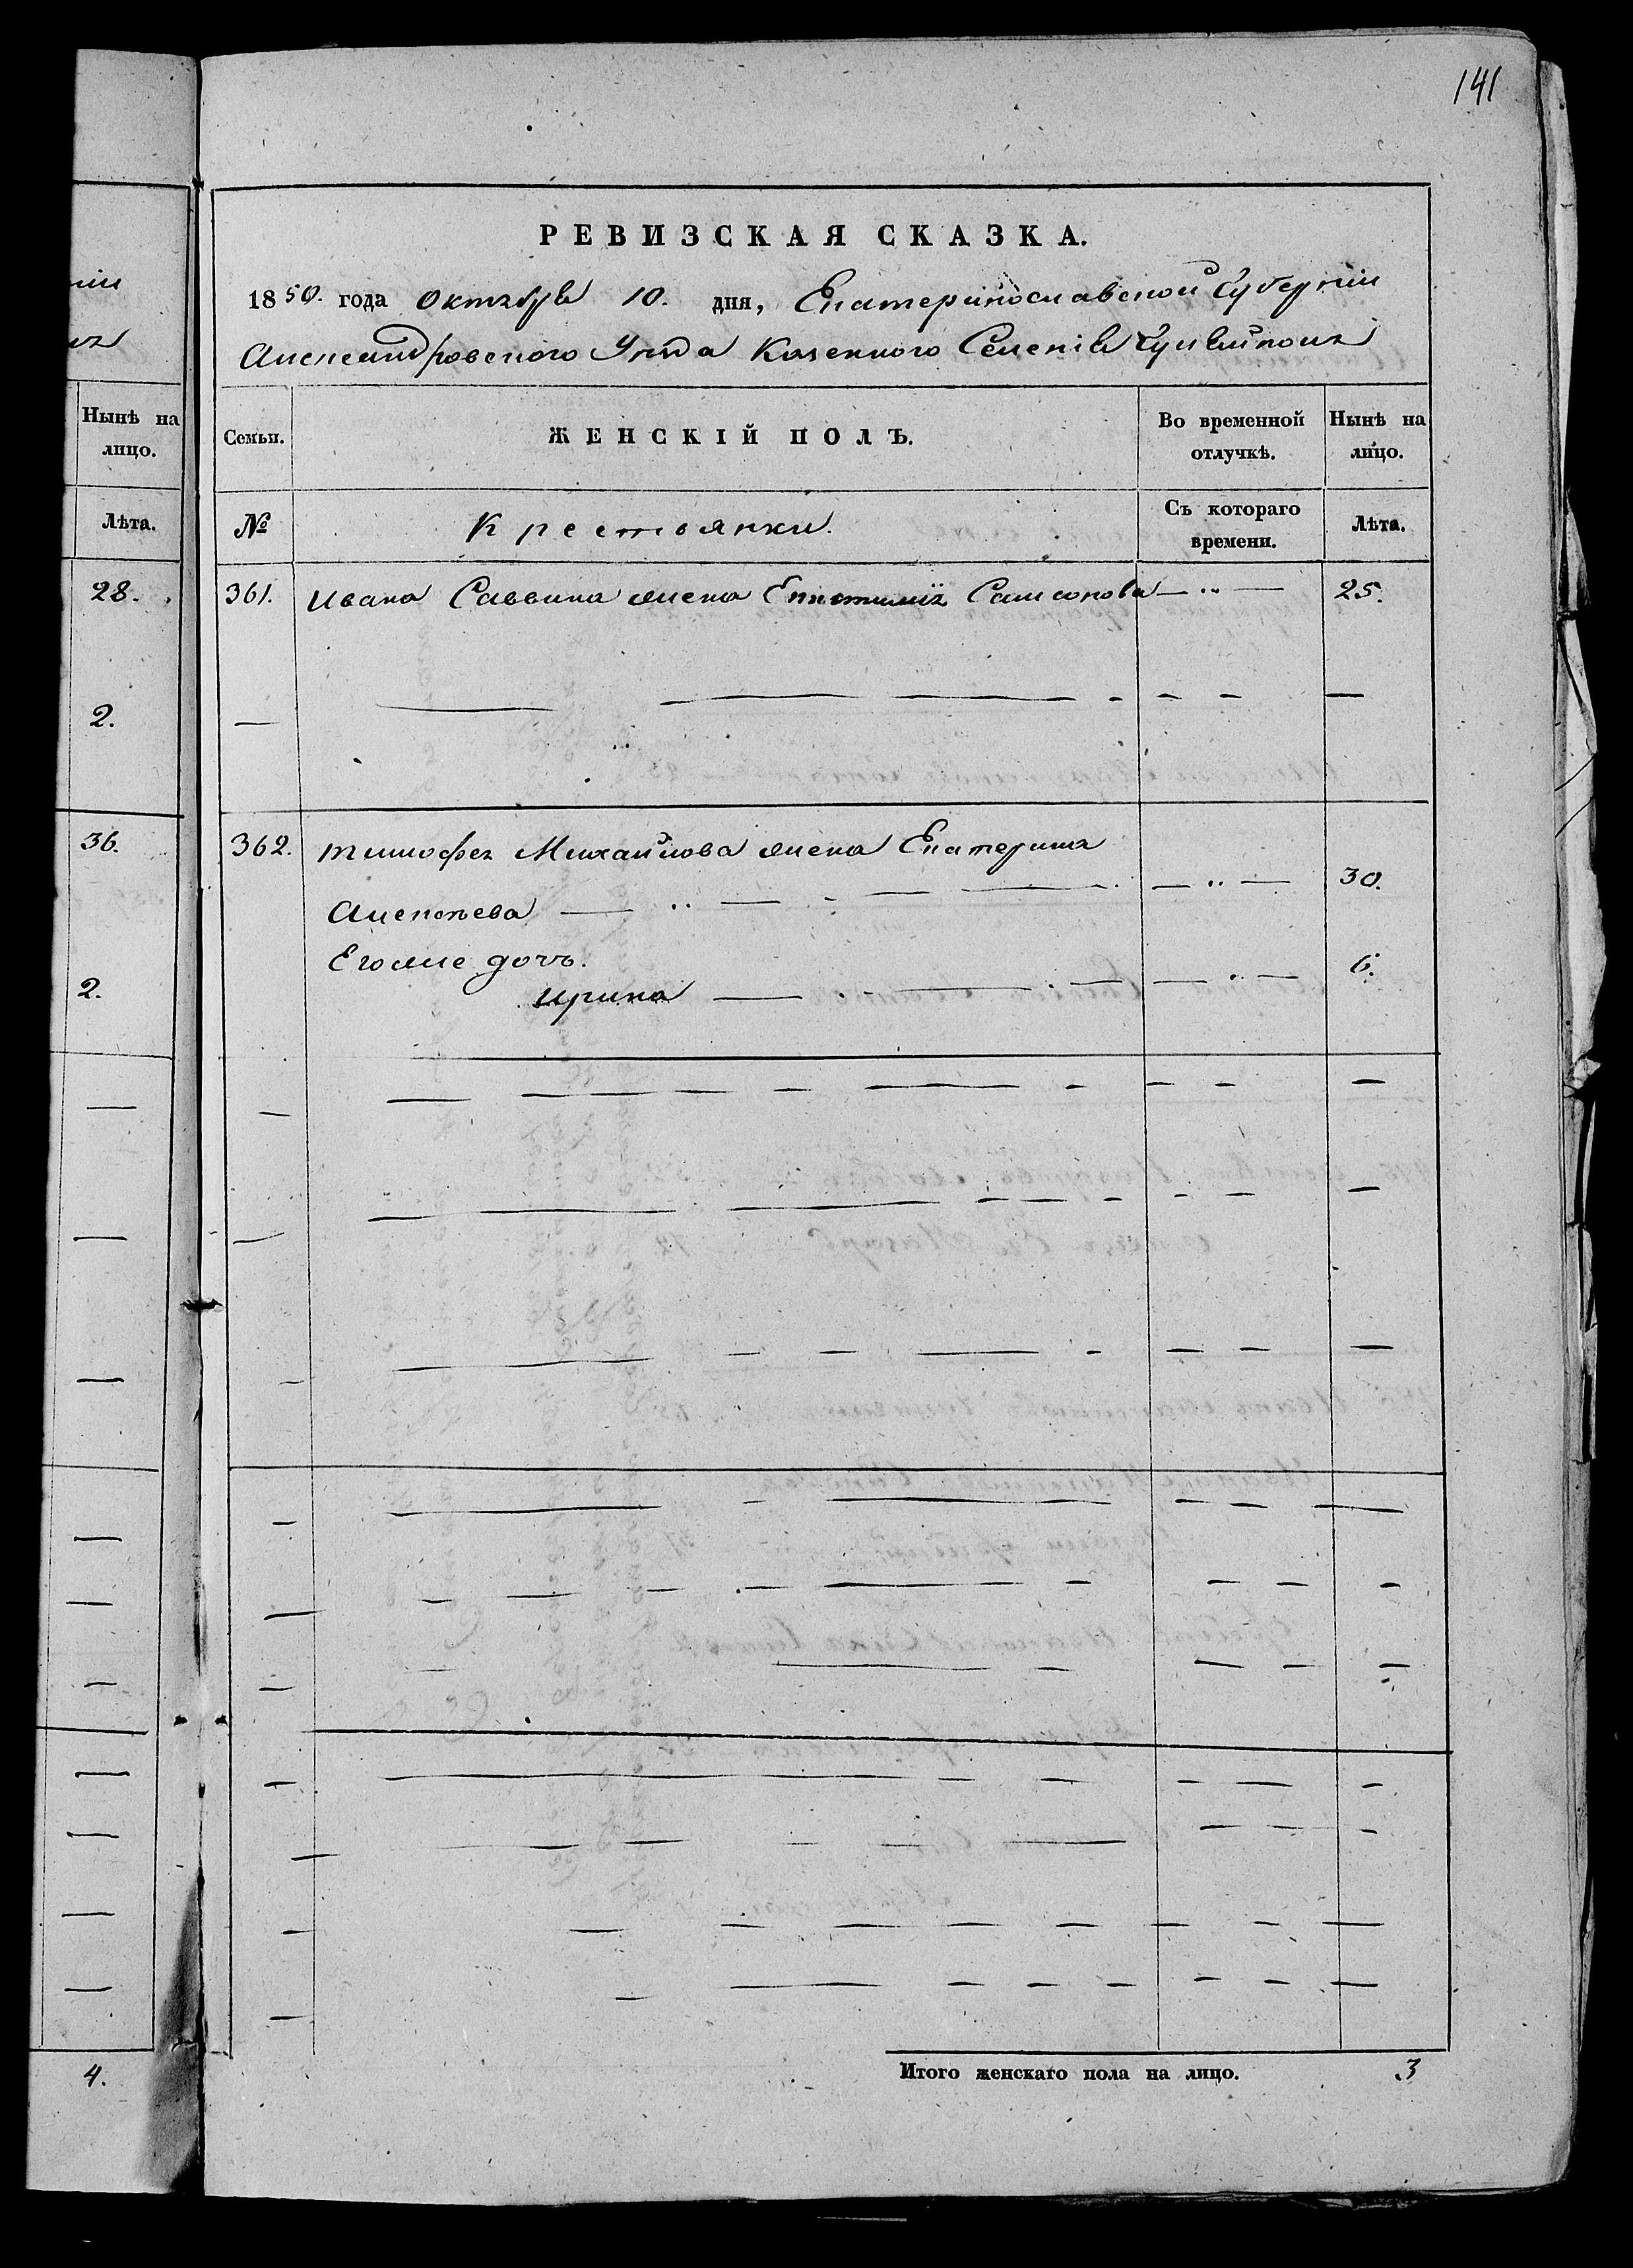 141
РЕВИЗСКАЯ СКАЗКА.
1850. года октября 10. дня, Екатеринославской Губернiи
Александровского Уезда Казенного Селенiя Гуляйполя
Семьи. ЖЕНСКІЙ ПОЛЪ. Во временной отлучкѣ. Нынѣ на лицо.
№ Крестьянки. Съ котораго времени. Лѣта.
361. Ивана Саввина жена Епистимiя Самсонова — „ — 25.
362. Тимофея Михайлова жена Екатерина
Алексѣева — „ — 30.
Его же дочь.
Ирина — „ — 6.
Итого женскаго пола на лицо. 3
нiи
Нынѣ на лицо.
Лѣта.
28.
2.
36.
2.
4.